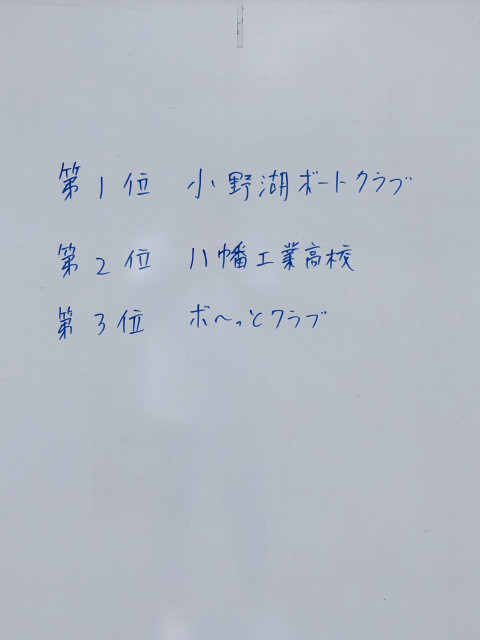 第1位 小野湖ボートクラブ
第2位 八幡工業高校
第3位 ボ〜っとクラブ